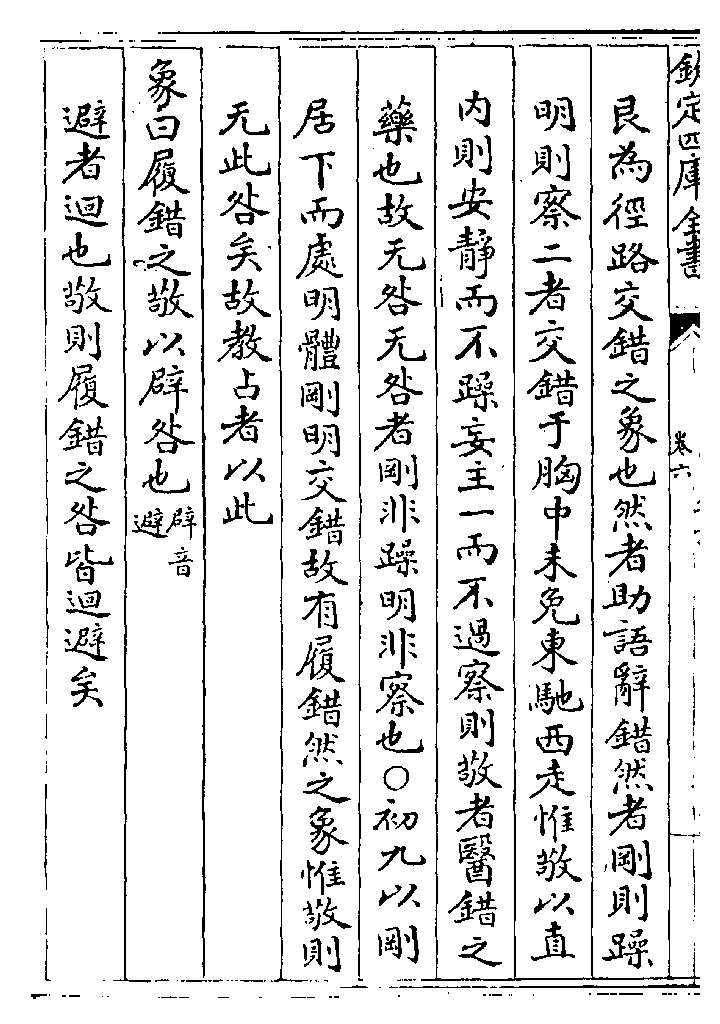 欽定四庫全書
卷六
艮為徑路交錯之象也然者助語辭錯然者剛則躁
明則察二者交錯于胸中未免東馳西走惟敬以直
内則安靜而不躁妄主一而不過察則敬者醫錯之
藥也故无咎无咎者剛非躁明非察也○初九以剛
居下而處明體剛明交錯故有履錯然之象惟敬則
无此咎矣故教占者以此
象曰履錯之敬以辟咎也辟音避
避者迴也敬則履錯之咎皆迴避矣